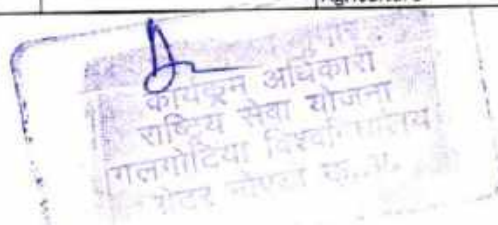 Agriculture
कार्यक्रम अधिकारी
राष्ट्रिय सेवा योजना
गलगोटिया विश्वविद्यालय
ग्रेटर नोएडा